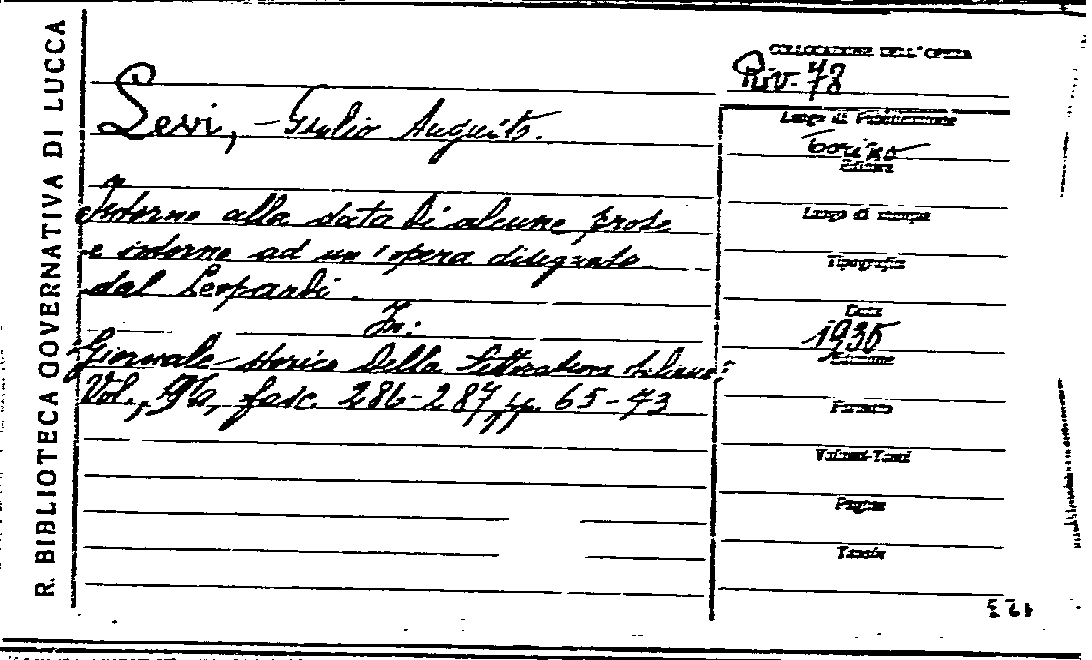 R. BIBLIOTECA GOVERNATIVA DI LUCCA
COLLOCAZIONE DELL'OPERA
Riv. 78
Levi, Giulio Augusto.
Intorno alla data di alcune prose
e intorno ad un'opera disegnata
dal Leopardi.
In:
Giornale storico della letteratura
Vol., fasc. 286-287, pp. 65-73
Luogo di Pubblicazione
Torino
Editore
Luogo di stampa
Tipografia
Data
1930
Edizione
Formato
Volumi-Tomi
Pagine
Tavole